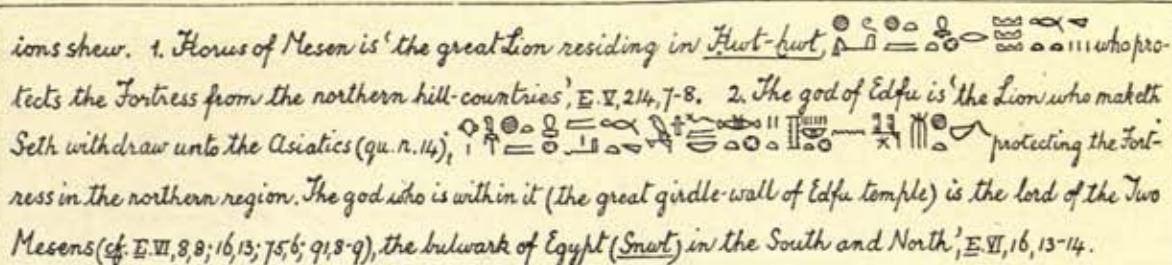 ions shew. 1. Horus of Mesen is 'the great Lion residing in Ḥwt-ḫwt, who pro-
tects the Fortress from the northern hill-countries', E.V, 214, 7-8. 2. The god of Edfu is 'the Lion who maketh
Seth withdraw unto the Asiatics (qu. n. 14), protecting the Fort-
ress in the northern region. The god who is within it (the great girdle-wall of Edfu temple) is the lord of the Two
Mesens (cf. E.VI, 8,8; 16,13; 75,6; 91,8-9), the bulwark of Egypt (Snwt) in the South and North', E.VI, 16, 13-14.